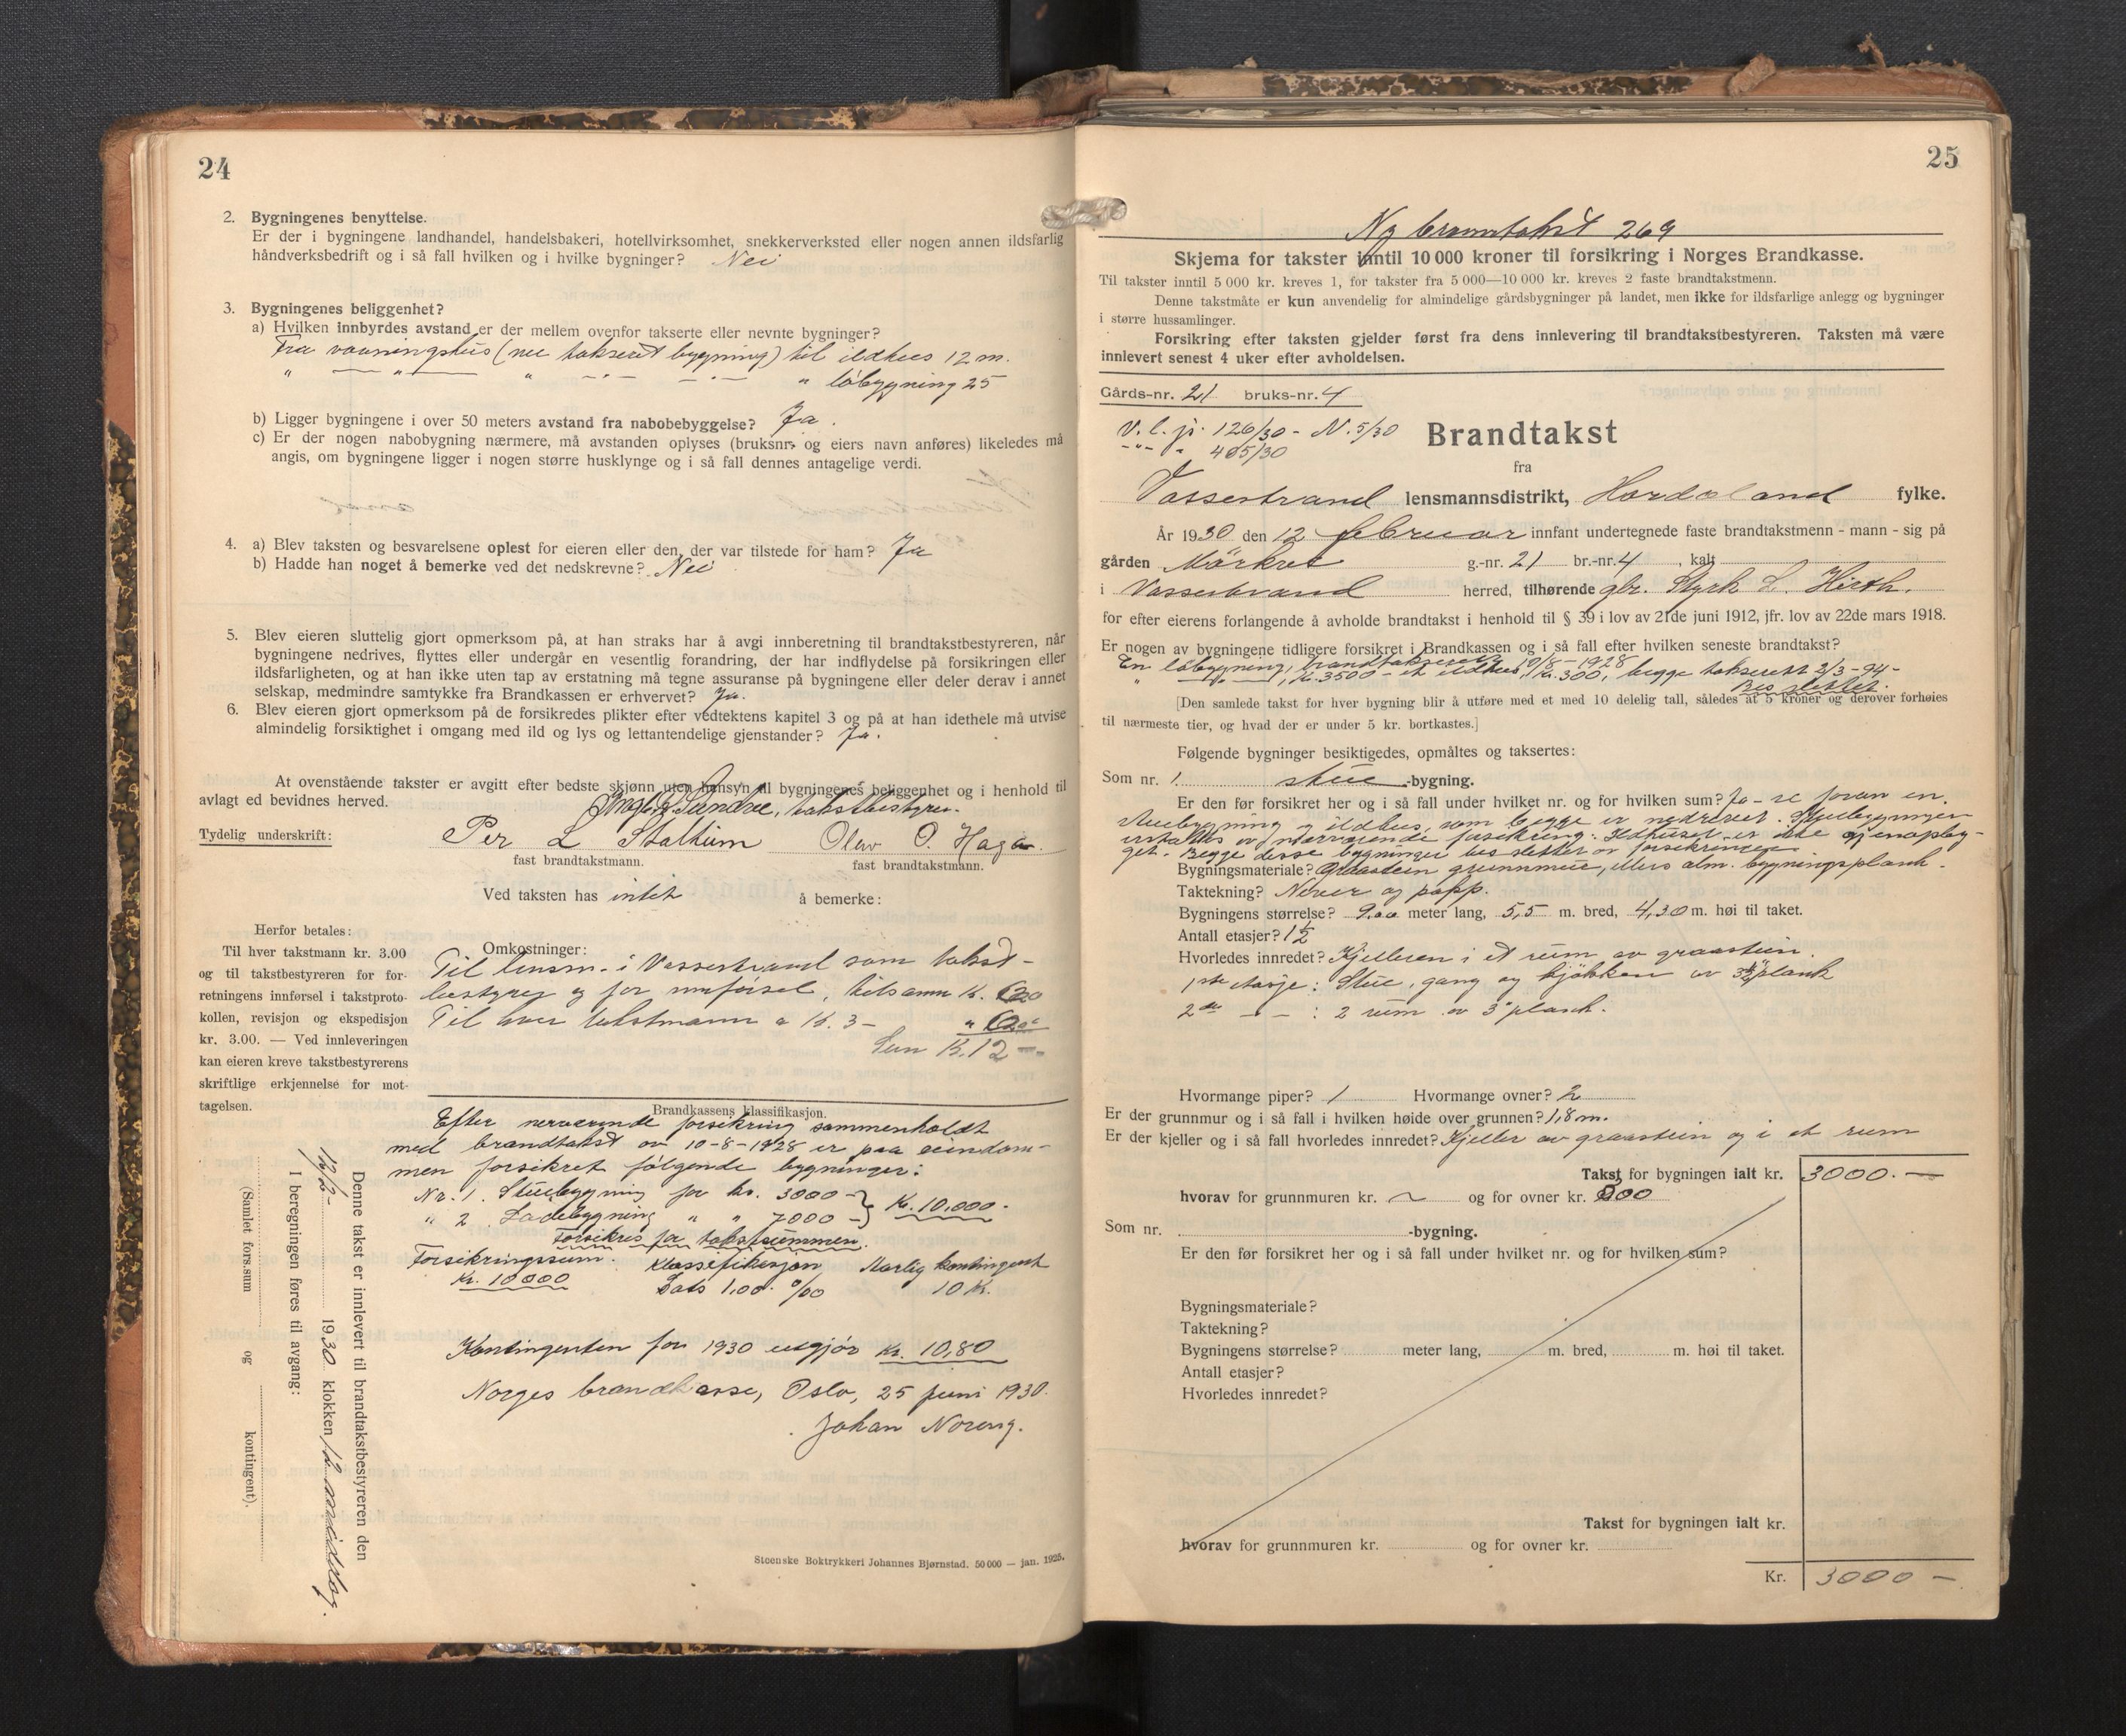 24
2. Bygningenes benyttelse.
Er der i bygningene landhandel, handelsbakeri, hotellvirksomhet, snekkerverksted eller nogen annen ildsfarlig
håndverksbedrift og i så fall hvilken og i hvilke bygninger? Nei
3. Bygningenes beliggenhet?
a) Hvilken innbyrdes avstand er der mellem ovenfor takserte eller nevnte bygninger?
Fra vaaningshus (nu taksert bygning) til ildhus 12 m.
" — " — " — " — — " — " löbygning 25
b) Ligger bygningene i over 50 meters avstand fra nabobebyggelse? Ja.
c) Er der nogen nabobygning nærmere, må avstanden oplyses (bruksnr. og eiers navn anføres) likeledes må
angis, om bygningene ligger i nogen større husklynge og i så fall dennes antagelige verdi.
4. a) Blev taksten og besvarelsene oplest for eieren eller den, der var tilstede for ham? Ja
b) Hadde han noget å bemerke ved det nedskrevne? Nei
5. Blev eieren sluttelig gjort opmerksom på, at han straks har å avgi innberetning til brandtakstbestyreren, når
bygningene nedrives, flyttes eller undergår en vesentlig forandring, der har indflydelse på forsikringen eller
ildsfarligheten, og at han ikke uten tap av erstatning må tegne assuranse på bygningene eller deler derav i annet
selskap, medmindre samtykke fra Brandkassen er erhvervet? Ja.
6. Blev eieren gjort opmerksom på de forsikredes plikter efter vedtektens kapitel 3 og på at han idethele må utvise
almindelig forsiktighet i omgang med ild og lys og lettantendelige gjenstander? Ja.
At ovenstående takster er avgitt efter bedste skjønn uten hensyn til bygningenes beliggenhet og i henhold til
avlagt ed bevidnes herved.
Sundve, takstbestyrer.
Tydelig underskrift: Per L Stalheim Olav O. Haga.
fast brandtakstmann. fast brandtakstmann.
Ved taksten has intet å bemerke:
Herfor betales:
Til hver takstmann kr. 3.00
og til takstbestyreren for for-
retningens innførsel i takstproto-
kollen, revisjon og ekspedisjon
kr. 3.00. — Ved innleveringen
kan eieren kreve takstbestyrerens
skriftlige erkjennelse for mot-
tagelsen.
Omkostninger:
Til lensm. i Vossestrand som takst-
bestyrer og for innførsel, tilsamm K.
Til hver takstmann a K. 3 –
Sum K. 12 –
Brandkassens klassifikasjon.
Efter nerværende forsikring sammenholdt
med brandtakst av 10-8-1928 er paa eiendom-
men forsikret følgende bygninger:
Nr. 1. Stuebygning for kr. 3000 –
" 2. Ladebygning " " 7000 – } Kr. 10,000.-
Forsikres for takstsummen.
Forsikringssum. Klassifikasjon Aarlig kontingent
Kr. 10000 Sats 1,00 o/oo 10 K.
Kontingenten for 1930 utgjör Kr. 10,80
Norges brandkasse, Oslo, 25 juni 1930.
Johan Noreng.
Denne takst er innlevert til brandtakstbestyreren den
12/2- 1930 klokken 12 middag.
I beregningen føres til avgang:
(Samlet fors.sum og kontingent).
Steenske Boktrykkeri Johannes Bjørnstad. 50 000 — jan. 1925.
25
Ny branntakst 269
Skjema for takster inntil 10 000 kroner til forsikring i Norges Brandkasse.
Til takster inntil 5 000 kr. kreves 1, for takster fra 5 000—10 000 kr. kreves 2 faste brandtakstmenn.
Denne takstmåte er kun anvendelig for almindelige gårdsbygninger på landet, men ikke for ildsfarlige anlegg og bygninger
i større hussamlinger.
Forsikring efter taksten gjelder først fra dens innlevering til brandtakstbestyreren. Taksten må være
innlevert senest 4 uker efter avholdelsen.
Gårds-nr. 21 bruks-nr. 4
V. l. jr. 126/30 - N. 5/30
-"- " 405/30
Brandtakst
fra
Vossestrand lensmannsdistrikt, Hordaland fylke.
År 1930 den 12 februar innfant undertegnede faste brandtakstmenn - mann - sig på
gården Mörkve g.-nr. 21 br.-nr. 4, kalt
i Vossestrand herred, tilhørende gbr. Styrk L. Hirth.
for efter eierens forlangende å avholde brandtakst i henhold til § 39 i lov av 21de juni 1912, jfr. lov av 22de mars 1918.
Er nogen av bygningene tidligere forsikret i Brandkassen og i så fall efter hvilken seneste brandtakst?
En löbygning, brandtaksert 10/8-1928
" , kr. 3500 - et ildhus, kr. 300, begge taksert 3/3-94 -
[Den samlede takst for hver bygning blir å utføre med et med 10 delelig tall, således at 5 kroner og derover forhøies
til nærmeste tier, og hvad der er under 5 kr. bortkastes.]
Følgende bygninger besiktigedes, opmåltes og taksertes:
Som nr. 1. stue-bygning.
Er den før forsikret her og i så fall under hvilket nr. og for hvilken sum? Ja - se foran en.
stuebygning og ildhus, som begge er nedrevet. Stuebygningen
erstattes av nærværende forsikring. Ildhuset er ikke gjenopbyg-
get. Begge disse bygninger besslettes av forsikringen
Bygningsmateriale? Graastein grunnmur, ellers alm. bygningsplank.
Taktekning? Never og papp.
Bygningens størrelse? 9.00 meter lang, 5,5 m. bred, 4,30 m. høi til taket.
Antall etasjer? 1½
Hvorledes innredet? Kjelleren i et rum av graastein.
1ste etasje: Stue, gang og kjökken av 3½" plank
2de — " — : 2 rum av 3" plank.
Hvormange piper? 1 Hvormange ovner? 2
Er der grunnmur og i så fall i hvilken høide over grunnen? 1,8 m.
Er der kjeller og i så fall hvorledes innredet? Kjeller av graastein og i et rum
Takst for bygningen ialt kr. 3000. —
hvorav for grunnmuren kr. ~ og for ovner kr.
Som nr. -bygning.
Er den før forsikret her og i så fall under hvilket nr. og for hvilken sum?
Bygningsmateriale?
Taktekning?
Bygningens størrelse? meter lang, m. bred, m. høi til taket.
Antall etasjer?
Hvorledes innredet?
Takst for bygningen ialt kr.
hvorav for grunnmuren kr. og for ovner kr.
Kr. 3000 –